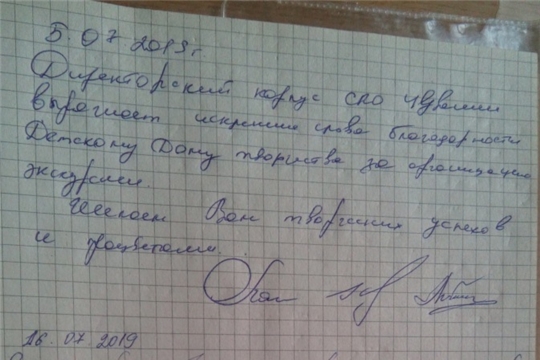 5.07.2019 г.
Директорский корпус СПО Чувашии
выражает искренние слова благодарности
Детскому Дому творчества за организацию
экскурсии.
Желаем Вам творческих успехов
и процветания.
26.07.2019